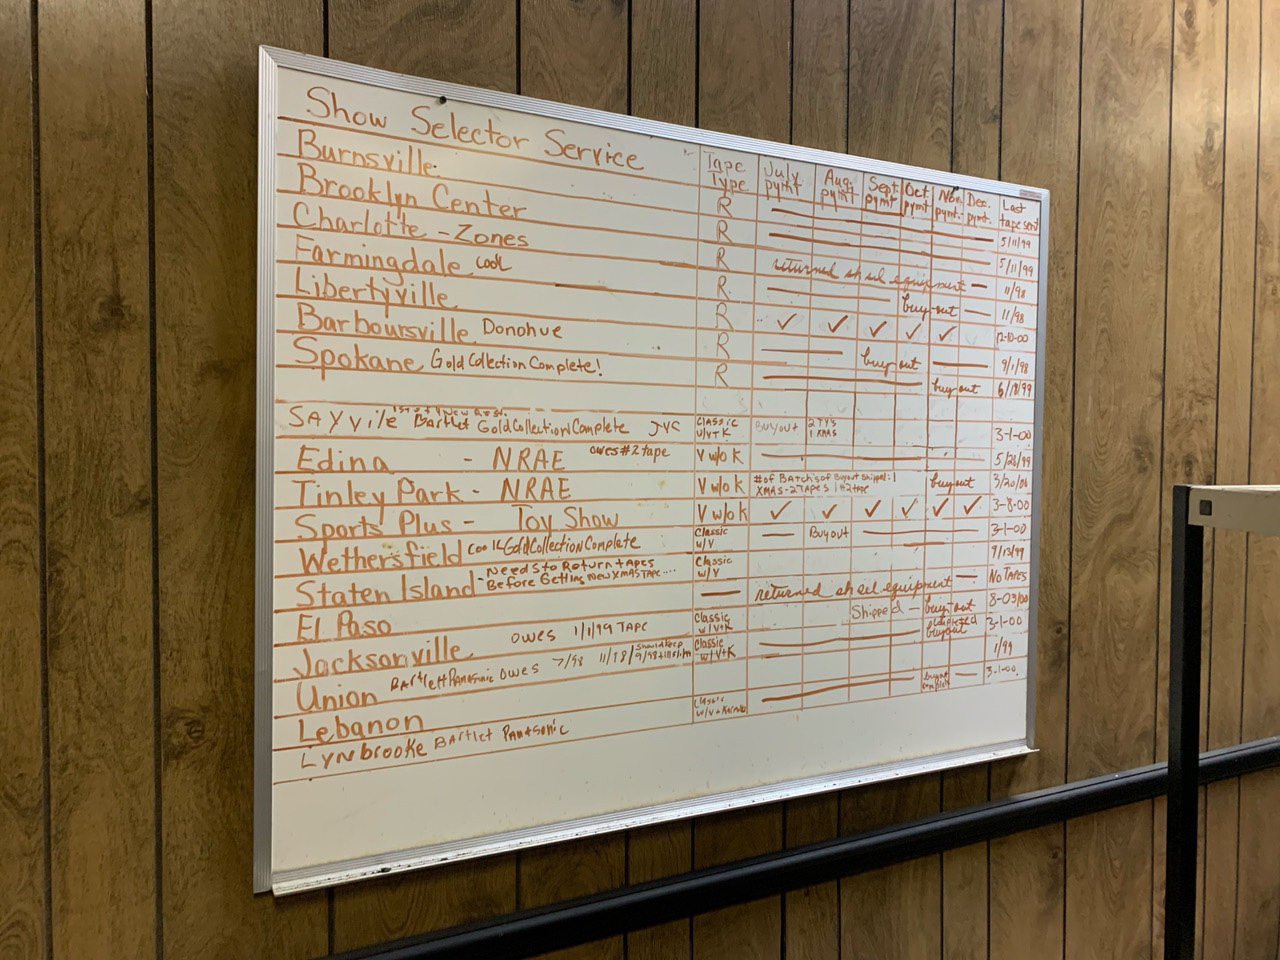 Show Selector Service Tape Type July pymt Aug. pymt Sept pymt Oct. pymt Nov. pymt. Dec. pymt. Last tape sent
Burnsville R 5/11/99
Brooklyn Center R 5/11/99
Charlotte - Zones R returned sh sel equipment 11/98
Farmingdale cool R buy out 11/98
Libertyville R ✓ ✓ ✓ ✓ ✓ 12-10-00
Barboursville Donohue R buy out 9/1/98
Spokane Gold Collection Complete! R buy out 6/18/99
SAYville Bartlet Gold Collection Complete JVC Classic w/v+K Buyout 2 TY's 1 XMAS 3-1-00
Edina - NRAE owes #2 tape V w/o K 5/28/99
Tinley Park - NRAE V w/o K # of BATch's of Buyout Shipped: 1 XMAS-2TAPES 1#2tape buyout
Sports Plus - Toy Show V w/o K ✓ ✓ ✓ ✓ ✓ ✓ 3-8-00
Wethersfield Gold Collection Complete Classic w/V Buyout 3-1-00
Staten Island - Needs to Return tapes Before Getting New XMAS TAPE.... Classic w/V 9/13/99
El Paso returned sh sel equipment No TAPES
Jacksonville owes 1/1/99 TAPE Classic w/V+K Shipped - buyout 8-03/00
Union Bartlett Panasonic owes 7/98 11/98 Classic w/V+K completed buyout 3-1-00
Lebanon 1/99
Lynbrooke Bartlet Panasonic Classic buyout complete 3-1-00